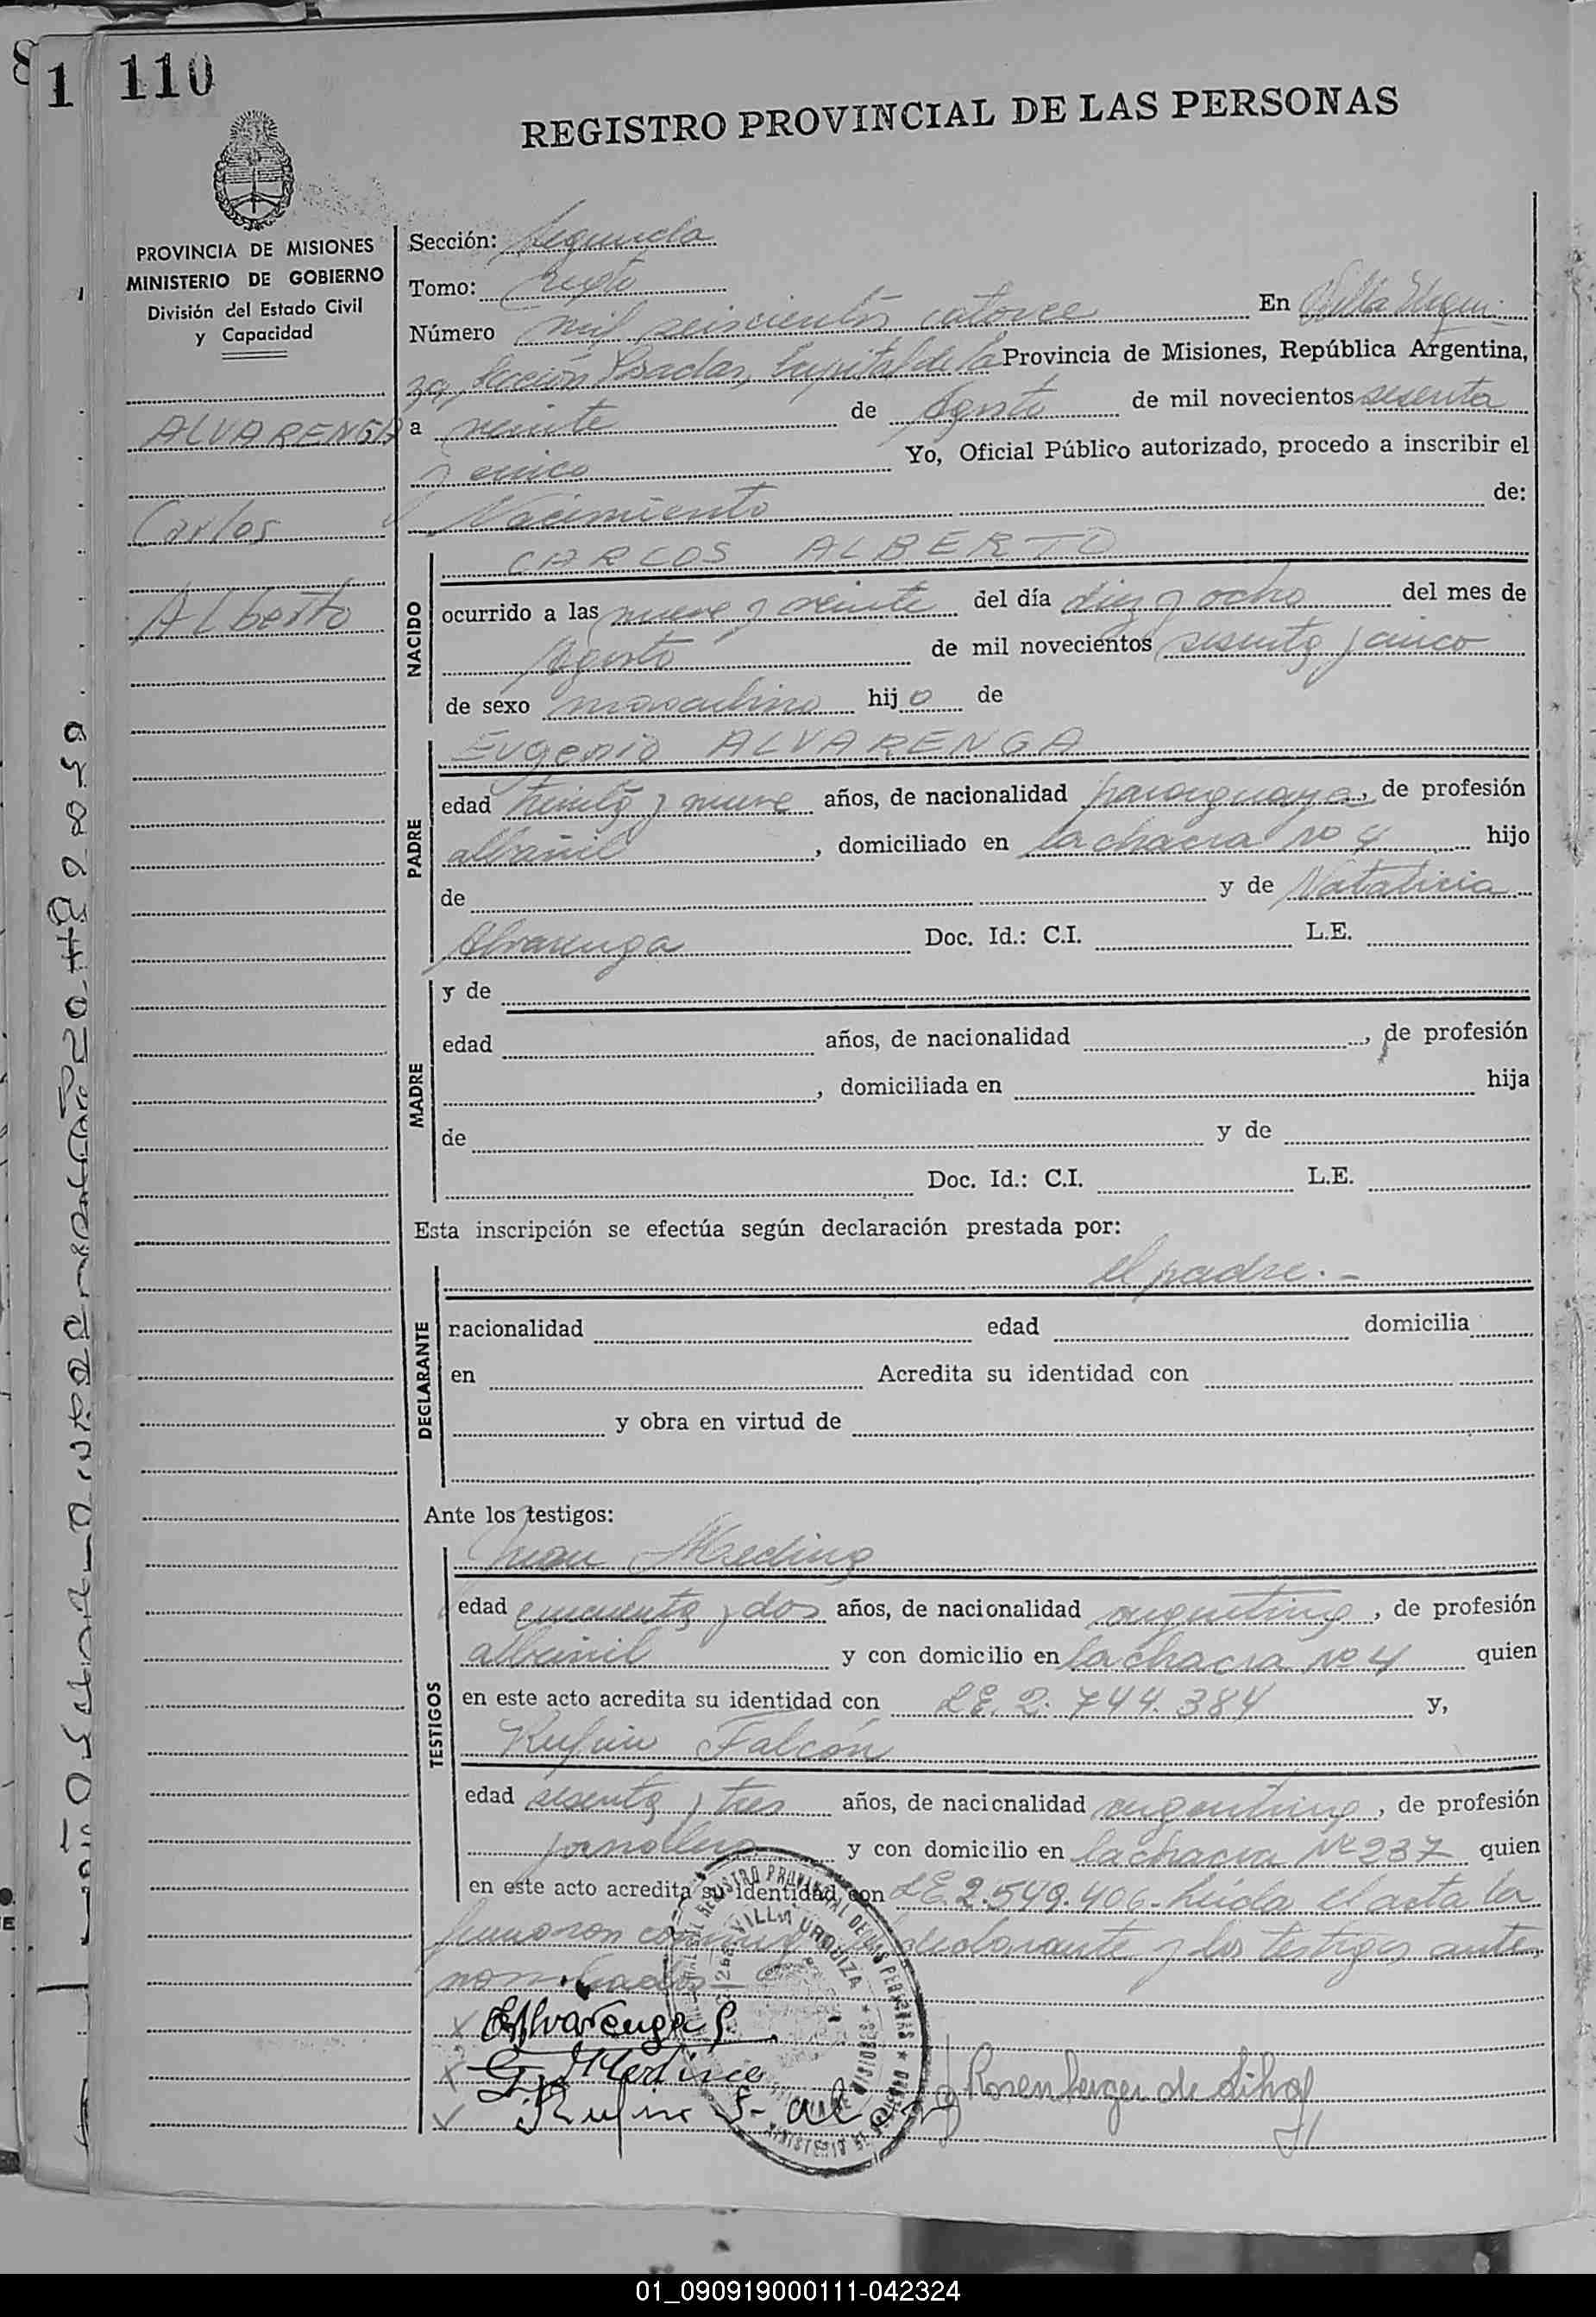 110
1
REGISTRO PROVINCIAL DE LAS PERSONAS
PROVINCIA DE MISIONES
MINISTERIO DE GOBIERNO
División del Estado Civil
y Capacidad
ALVARENGA
Carlos
Alberto
Sección: Segunda
Tomo: sexto
Número mil seiscientos catorce En Villa Urqui-
za, Sección Posadas, Capital de la Provincia de Misiones, República Argentina,
a veinte de Agosto de mil novecientos sesenta
y cinco Yo, Oficial Público autorizado, procedo a inscribir el
Nacimiento de:
NACIDO
CARLOS ALBERTO
ocurrido a las nueve y veinte del día diez y ocho del mes de
Agosto de mil novecientos sesenta y cinco
de sexo masculino hijo de
PADRE
Eugenio ALVARENGA
edad treinta y nueve años, de nacionalidad paraguaya, de profesión
albañil, domiciliado en la chacra nº 4 hijo
de y de Natalicia
Alvarenga Doc. Id.: C.I. L.E.
MADRE
y de
edad años, de nacionalidad , de profesión
, domiciliada en hija
de y de
Doc. Id.: C.I. L.E.
Esta inscripción se efectúa según declaración prestada por:
DECLARANTE
el padre.-
nacionalidad edad domicilia
en Acredita su identidad con
y obra en virtud de
Ante los testigos:
TESTIGOS
Juan Medina
edad cincuenta y dos años, de nacionalidad argentino, de profesión
albañil y con domicilio en la chacra nº 4 quien
en este acto acredita su identidad con L.E. 2.744.384 y,
Rufino Falcón
edad sesenta y tres años, de nacionalidad argentino, de profesión
jornalero y con domicilio en la chacra Nº 237 quien
en este acto acredita su identidad con L.E. 2.549.406. Leída el acta la
firmaron conmigo declarante y los testigos ante
nombrados
EAlvarenga P.
G. Medina
Rufino Falcon
Rosenberger de Silva
VILLA URQUIZA
01_090919000111-042324